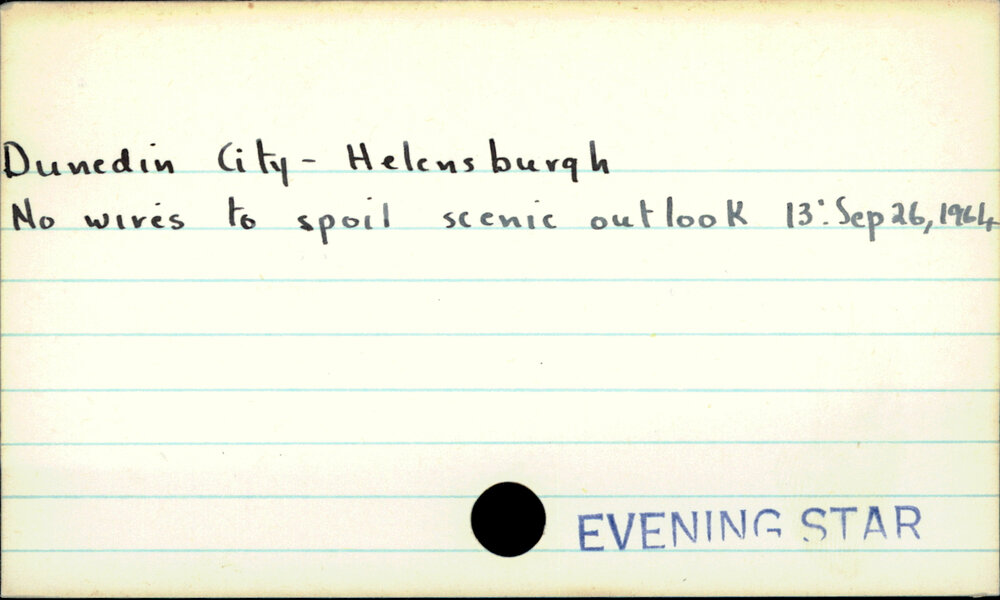 Dunedin City - Helensburgh
No wires to spoil scenic outlook 13: Sep 26, 1964
EVENING STAR